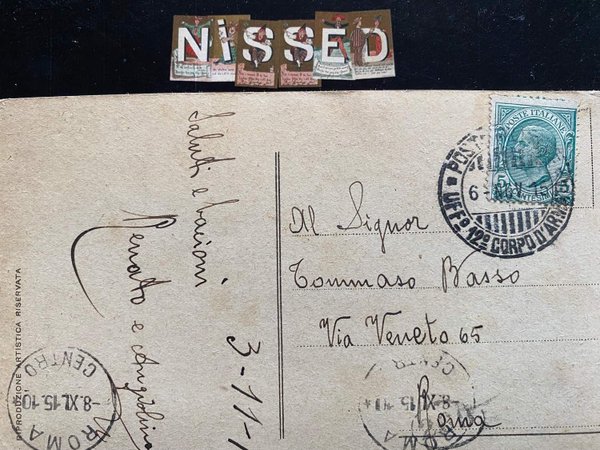 NiSSED
Saluti e bacioni
Renato e Angiolina
3-11-1
POSTE ITALIANE
5
POST
6- NOV. 15
UFF° 12° CORPO D'ARM
Al Signor
Tommaso Basso
Via Veneto 65
Roma
RIPRODUZIONE ARTISTICA RISERVATA
ROMA
CENTRO
-8.XI.15.10
ROMA
CENTR
-8.XI.15